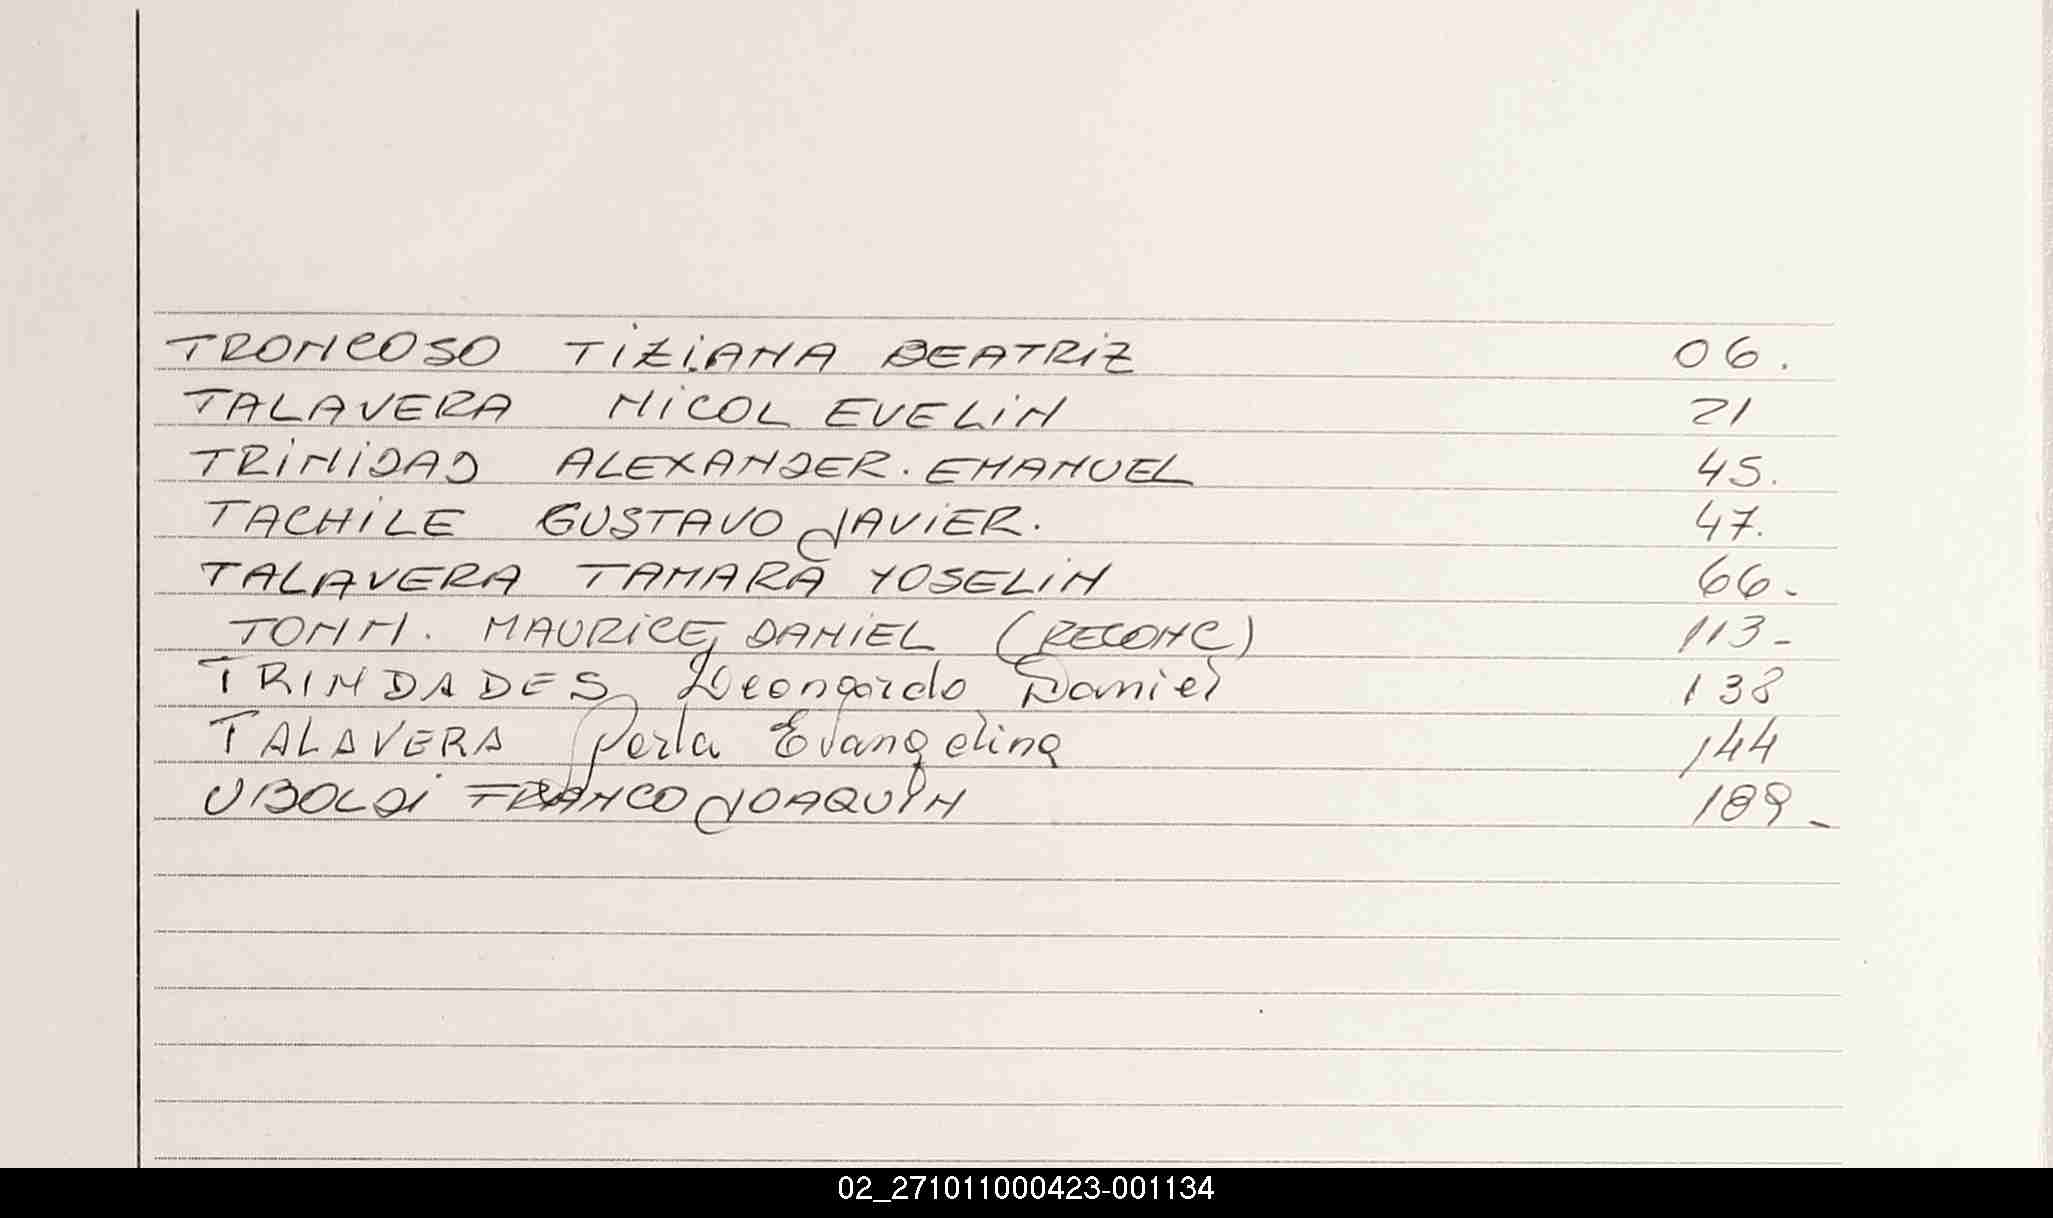 TRONCOSO TIZIANA BEATRIZ 06.
TALAVERA NICOL EVELIN 21
TRINIDAD ALEXANDER. EMANUEL 45.
TACHILE GUSTAVO JAVIER. 47.
TALAVERA TAMARA YOSELIN 66-
TONN. MAURICE, DANIEL (RECONC) 113-
TRINDADES Leonardo Daniel 138
TALAVERA Perla Evangelina 144
UBOLDI FRANCO JOAQUIN 189-
02_271011000423-001134